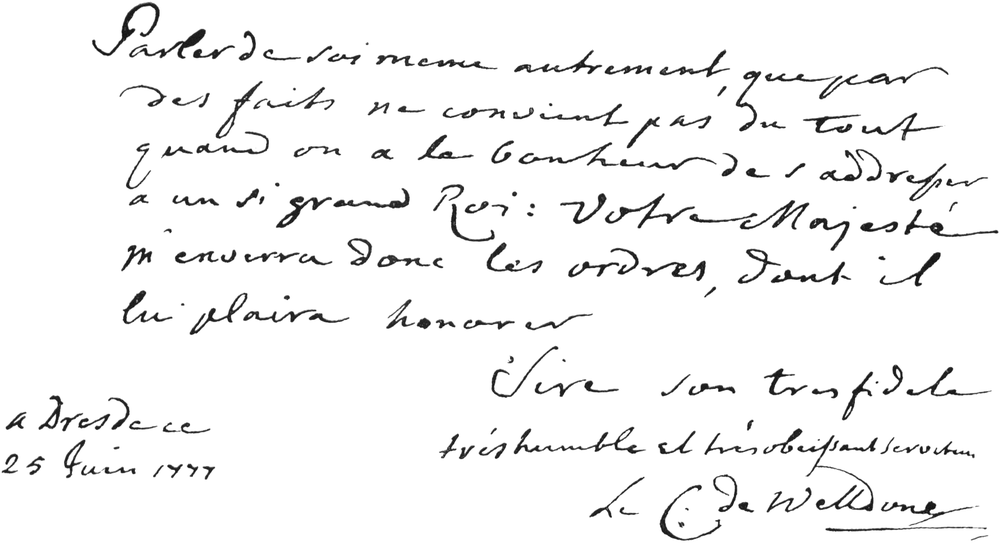 Parler de soi meme autrement, que par
des faits ne convient pas du tout
quand on a le bonheur de s addresser
a un si grand Roi: Votre Majesté
m'enverra donc les ordres, dont il
lui plaira honorer
Sire son tres fidele
a Dresde ce
trés humble et trés obeissant serviteur
25 Juin 1777
Le C. de Welldone